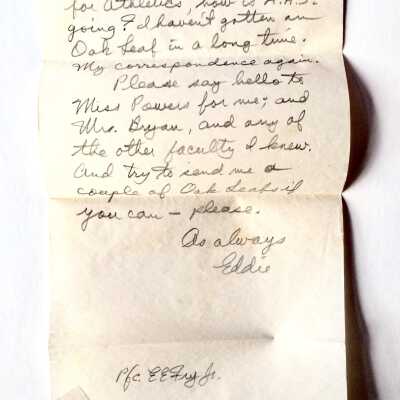 for Athletics, how is A.A.S.
going? I haven't gotten an
Oak Leaf in a long time.
My correspondence again.
Please say hello to
Miss Powers for me; and
Mrs. Bryan, and any of
the other faculty I knew.
And try to send me a
couple of Oak Leafs if
you can – please.
As always
Eddie
Pfc. E E Fry Jr.